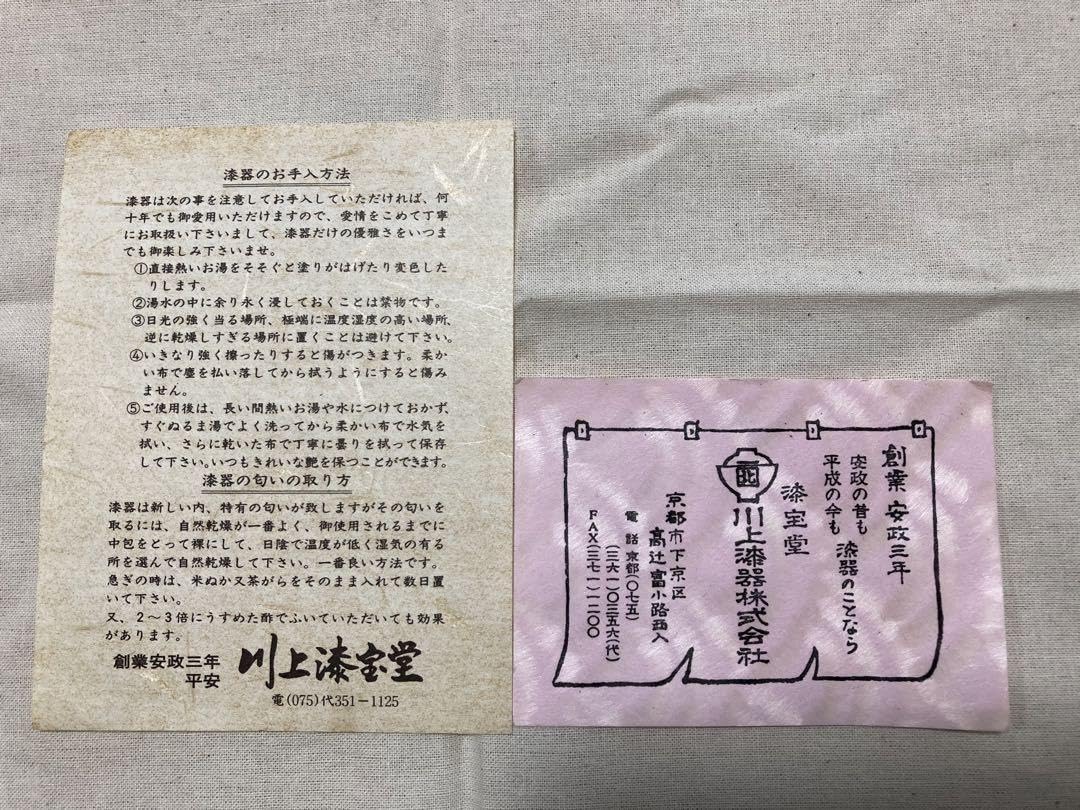 漆器のお手入方法
漆器は次の事を注意してお手入していただければ、何
十年でも御愛用いただけますので、愛情をこめて丁寧
にお取扱い下さいまして、漆器だけの優雅さをいつま
でも御楽しみ下さいませ。
①直接熱いお湯をそそぐと塗りがはげたり変色した
りします。
②湯水の中に余り永く浸しておくことは禁物です。
③日光の強く当る場所、極端に温度湿度の高い場所、
逆に乾燥しすぎる場所に置くことは避けて下さい。
④いきなり強く擦ったりすると傷がつきます。柔か
い布で塵を払い落してから拭うようにすると傷み
ません。
⑤ご使用後は、長い間熱いお湯や水につけておかず、
すぐぬるま湯でよく洗ってから柔かい布で水気を
拭い、さらに乾いた布で丁寧に曇りを拭って保存
して下さい。いつもきれいな艶を保つことができます。
漆器の匂いの取り方
漆器は新しい内、特有の匂いが致しますがその匂いを
取るには、自然乾燥が一番よく、御使用されるまでに
中包をとって裸にして、日陰で温度が低く湿気の有る
所を選んで自然乾燥して下さい。一番良い方法です。
急ぎの時は、米ぬか又茶がらをそのまま入れて数日置
いて下さい。
又、2〜3倍にうすめた酢でふいていただいても効果
があります。
創業安政三年
平安
川上漆宝堂
電(075)代351-1125
創業 安政三年
安政の昔も
平成の今も
漆器のことなら
漆宝堂
川上漆器株式会社
京都市下京区
高辻富小路西入
電話 京都(〇七五)
(三六一)〇三五六(代)
FAX(三七一)一二〇〇